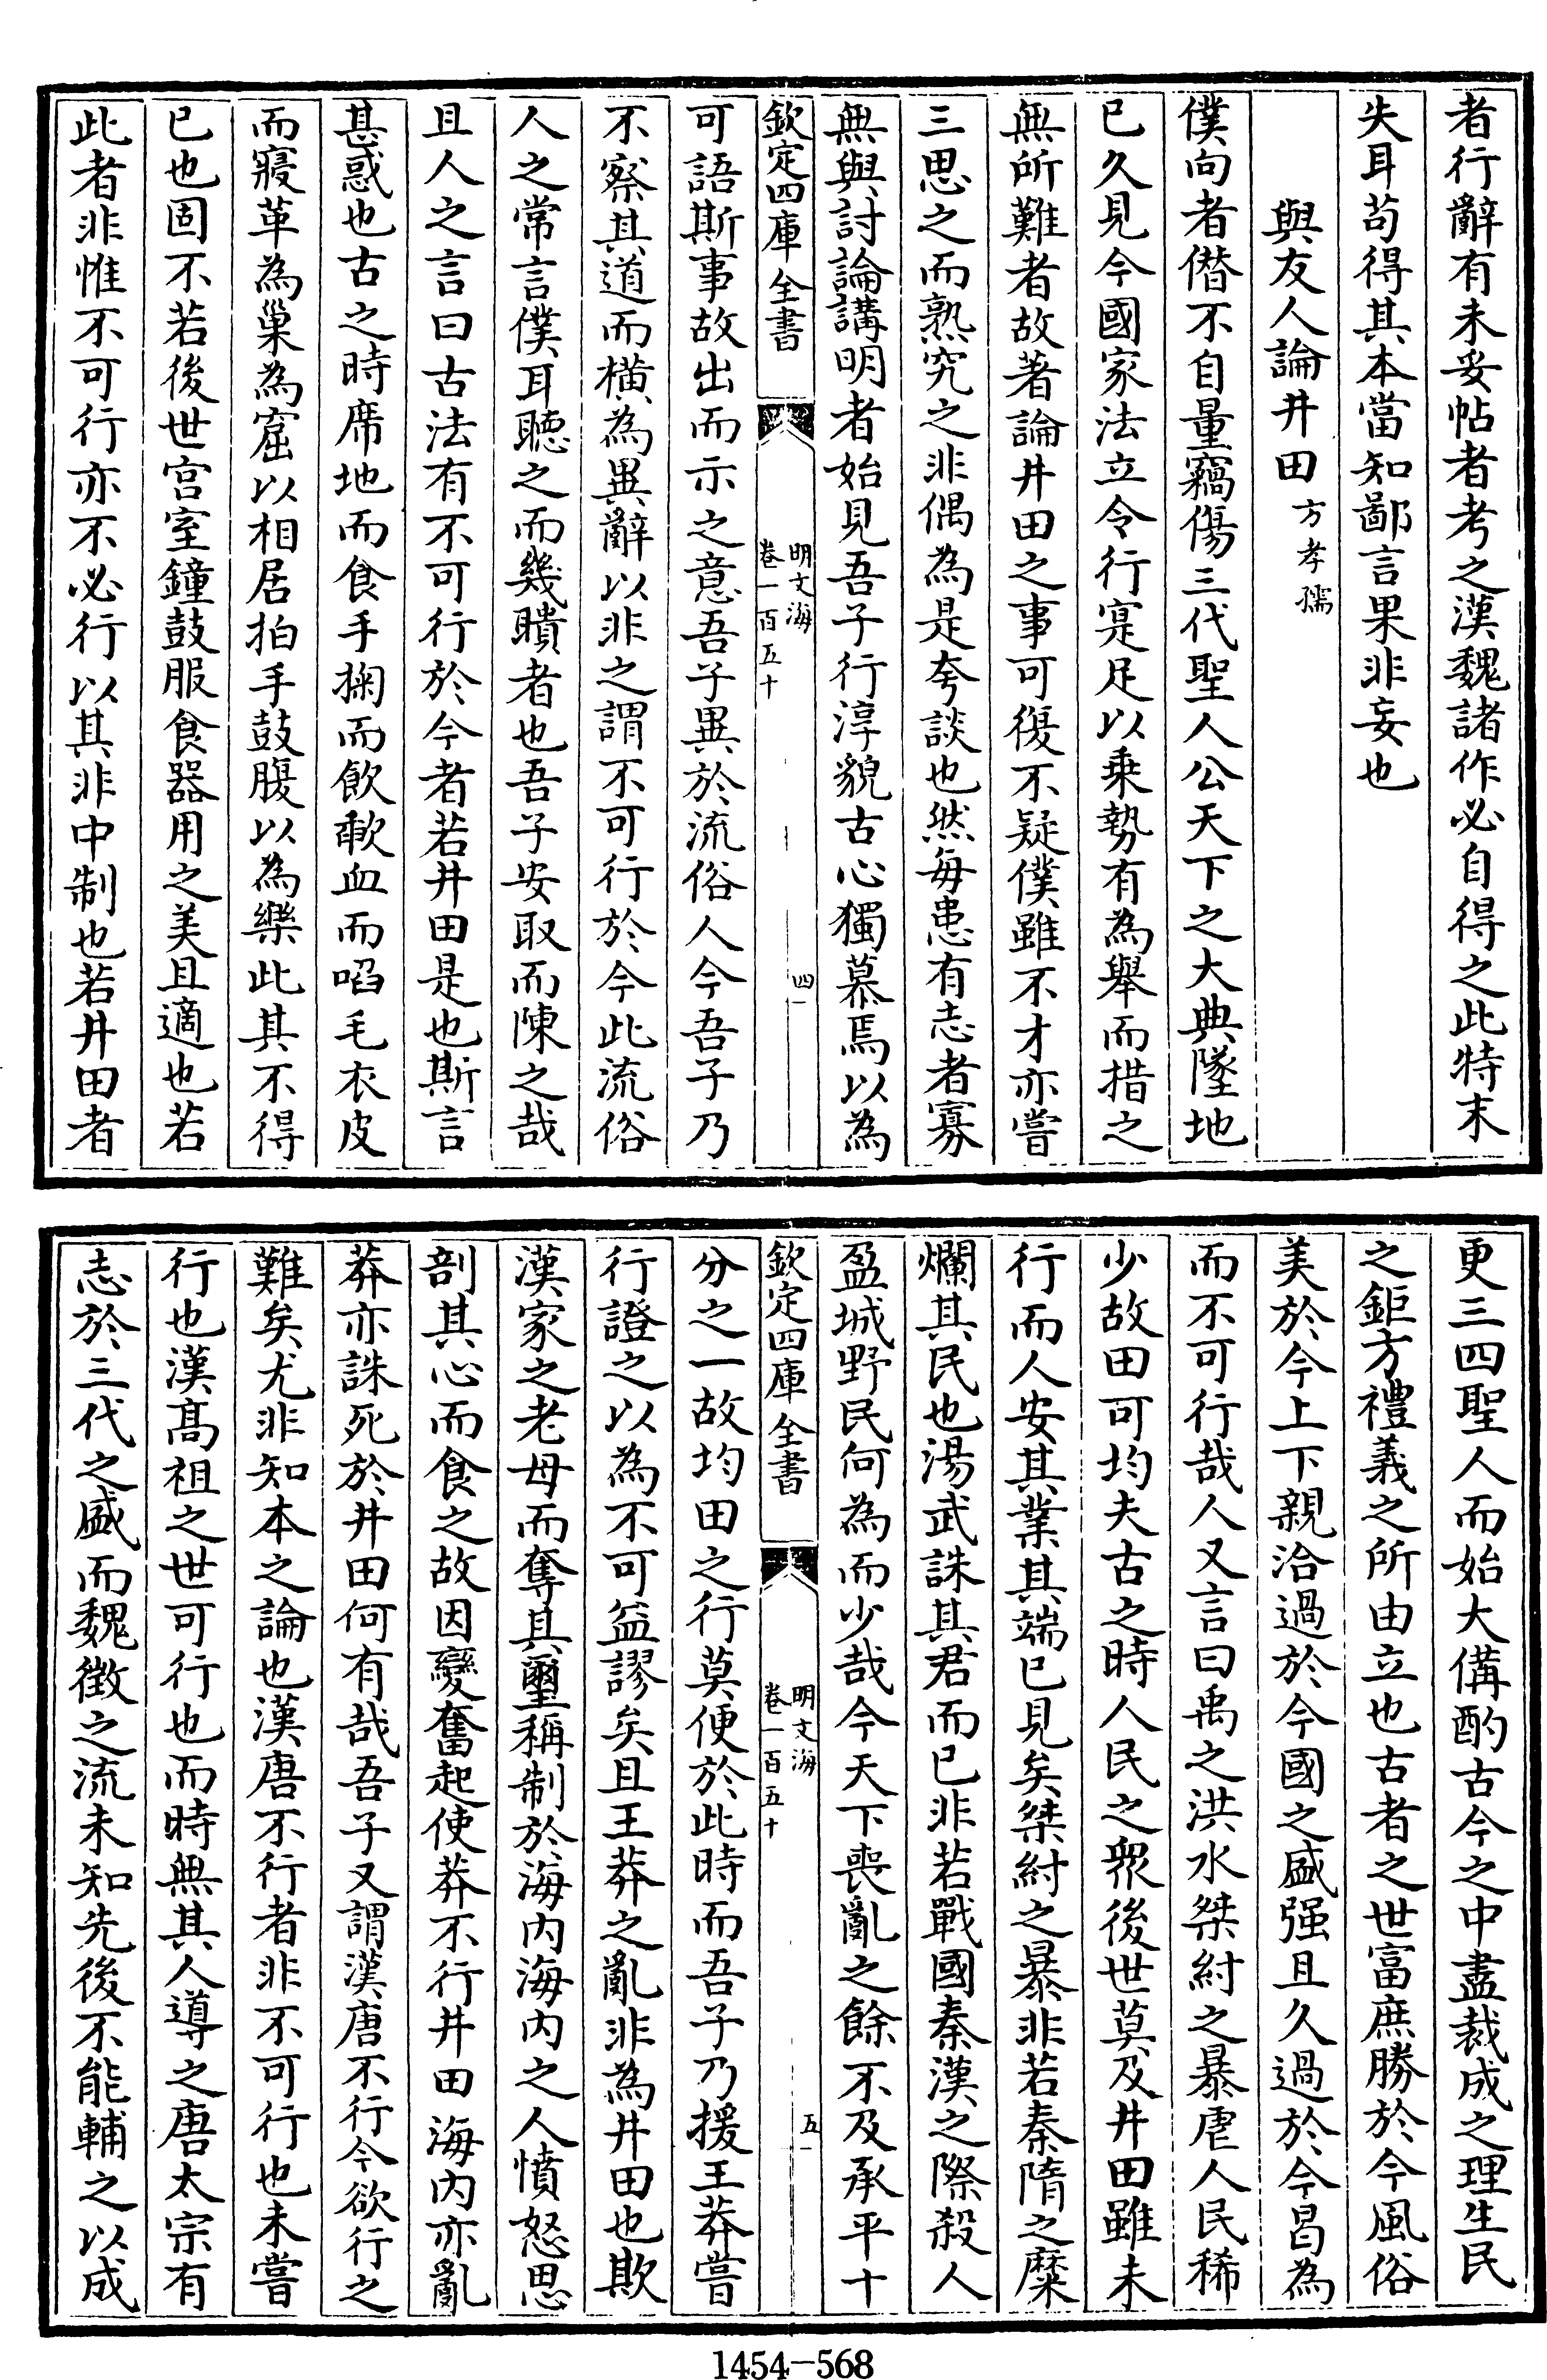 者行辭有未妥帖者考之漢魏諸作必自得之此特末
失耳苟得其本當知鄙言果非妄也
與友人論井田 方孝孺
僕向者僭不自量竊傷三代聖人公天下之大典墜地
已久見今國家法立令行寔足以乗勢有為舉而措之
無所難者故著論井田之事可復不疑僕雖不才亦嘗
三思之而熟究之非偶為是夸談也然毎患有志者寡
無與討論講明者始見吾子行淳貌古心獨慕焉以為
欽定四庫全書
明文海
卷一百五十
四
可語斯事故出而示之意吾子異於流俗人今吾子乃
不察其道而横為異辭以非之謂不可行於今此流俗
人之常言僕耳聽之而幾聵者也吾子安取而陳之哉
且人之言曰古法有不可行於今者若井田是也斯言
甚惑也古之時席地而食手掬而飲㰱血而啗毛衣皮
而寢革為巢為窟以相居拍手鼓腹以為樂此其不得
已也固不若後世宫室鐘鼓服食器用之美且適也若
此者非惟不可行亦不必行以其非中制也若井田者
更三四聖人而始大備酌古今之中盡裁成之理生民
之鉅方禮義之所由立也古者之世富庶勝於今風俗
美於今上下親洽過於今國之盛强且久過於今曷為
而不可行哉人又言曰禹之洪水桀紂之暴虐人民稀
少故田可均夫古之時人民之衆後世莫及井田雖未
行而人安其業其端已見矣桀紂之暴非若秦隋之糜
爛其民也湯武誅其君而已非若戰國秦漢之際殺人
盈城野民何為而少哉今天下喪亂之餘不及承平十
欽定四庫全書
明文海
卷一百五十
五
分之一故均田之行莫便於此時而吾子乃援王莽嘗
行證之以為不可益謬矣且王莽之亂非為井田也欺
漢家之老母而奪其璽稱制於海内海内之人憤怒思
剖其心而食之故因變奮起使莽不行井田海内亦亂
莽亦誅死於井田何有哉吾子又謂漢唐不行今欲行之
難矣尤非知本之論也漢唐不行者非不可行也未嘗
行也漢髙祖之世可行也而時無其人導之唐太宗有
志於三代之盛而魏徴之流未知先後不能輔之以成
1454—568